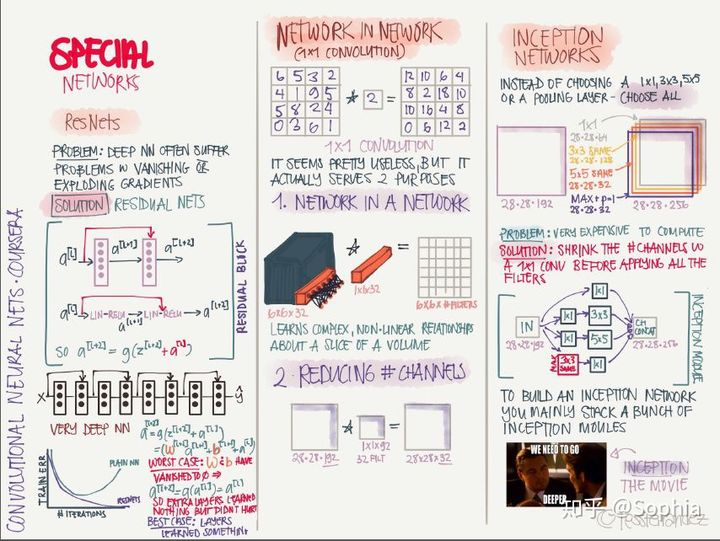 CONVOLUTIONAL NEURAL NETS · COURSERA
SPECIAL
NETWORKS
ResNets
PROBLEM: DEEP NN OFTEN SUFFER
PROBLEMS W VANISHING OR
EXPLODING GRADIENTS
SOLUTION RESIDUAL NETS
a[l] a[l+1] a[l+2]
a[l] LIN-RELU LIN-RELU a[l+2]
a[l+1]
SO a[l+2] = g(z[l+2] + a[l])
RESIDUAL BLOCK
X ŷ
VERY DEEP NN
TRAIN ERR
PLAIN NN
RESNETS
# ITERATIONS
WORST CASE: W & b HAVE
VANISHED TO 0 ⇒
SO EXTRA LAYERS LEARNED
NOTHING BUT DIDN'T HURT
BEST CASE: LAYERS
LEARNED SOMETHING
NETWORK IN NETWORK
(1×1 CONVOLUTION)
6 5 3 2 12 10 6 4
4 1 9 5 * 2 = 8 2 18 10
5 8 2 4 10 16 4 8
0 3 6 1 0 6 12 2
1×1 CONVOLUTION
IT SEEMS PRETTY USELESS, BUT IT
ACTUALLY SERVES 2 PURPOSES
1. NETWORK IN A NETWORK
* =
6×6×32 1×1×32 6×6×#FILTERS
LEARNS COMPLEX, NON-LINEAR RELATIONSHIPS
ABOUT A SLICE OF A VOLUME
2. REDUCING # CHANNELS
* =
28·28·192 1×1×192 28×28×32
32 FILT
INCEPTION
NETWORKS
INSTEAD OF CHOOSING A 1×1, 3×3, 5×5
OR A POOLING LAYER - CHOOSE ALL
1×1
28·28·64
3×3 SAME
28·28·128
5×5 SAME
28·28·32
MAX + P=1
28·28·32
28·28·192
28·28·256
PROBLEM: VERY EXPENSIVE TO COMPUTE
SOLUTION: SHRINK THE #CHANNELS W
A 1×1 CONV BEFORE APPLYING ALL THE
FILTERS
1×1
1×1 3×3
IN
28·28·192
1×1 5×5
CH
CONCAT
28·28·256
3×3
SAME
1×1
INCEPTION MODULE
TO BUILD AN INCEPTION NETWORK
YOU MAINLY STACK A BUNCH OF
INCEPTION MOULES
WE NEED TO GO
DEEPER
INCEPTION
THE MOVIE
知乎 @Sophia